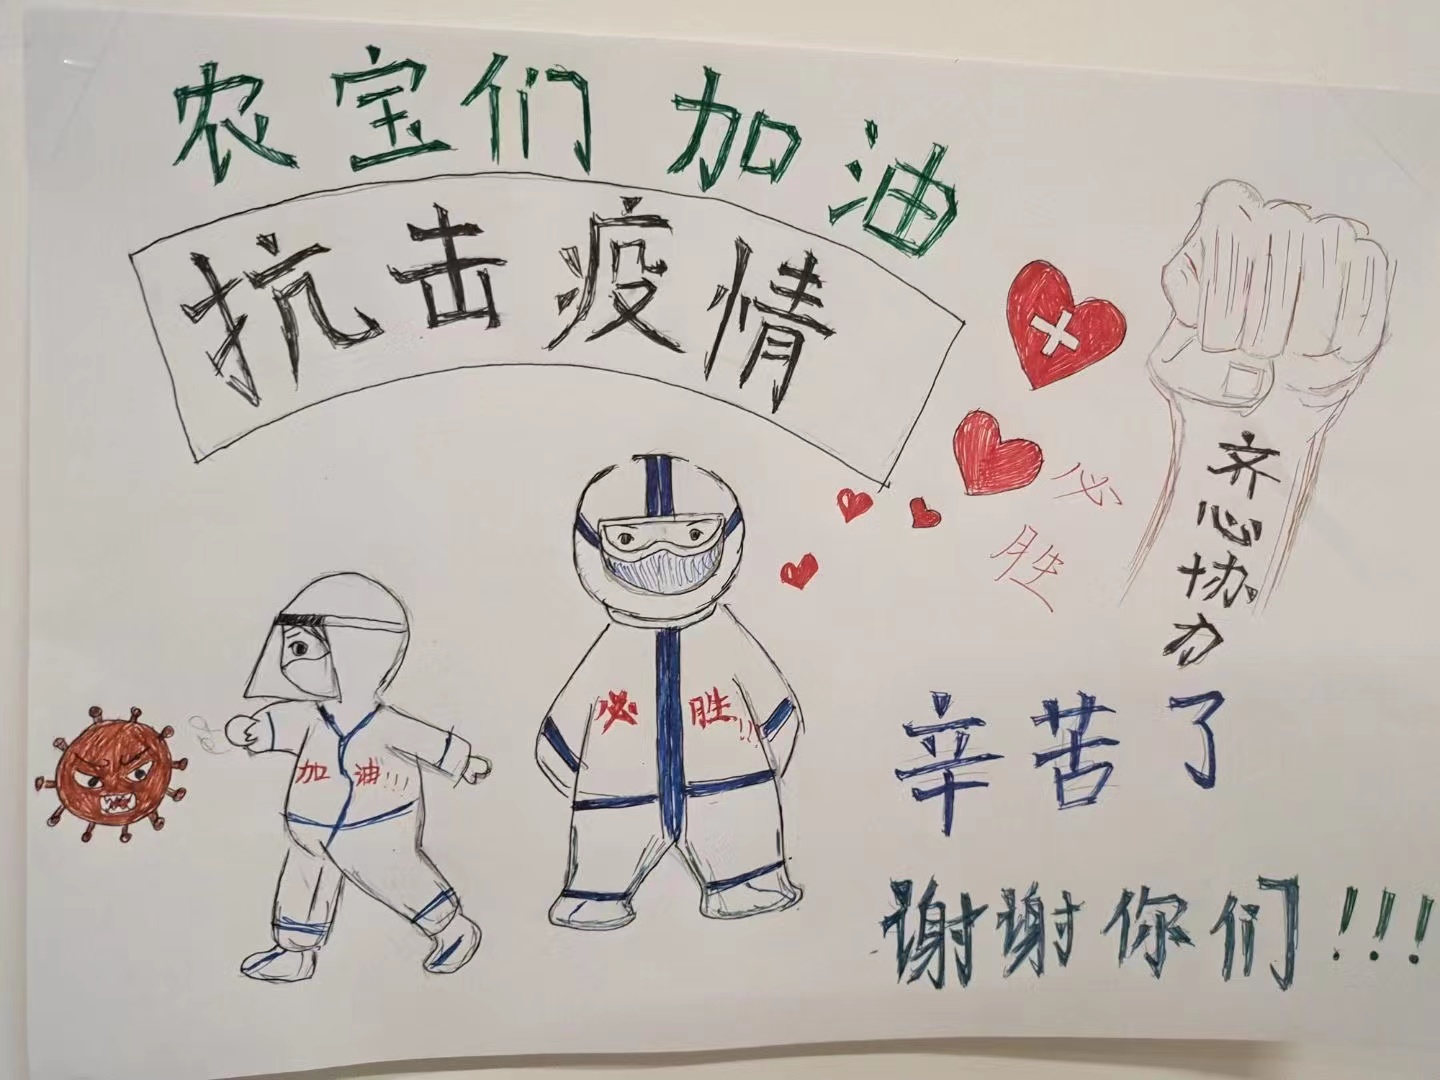 农宝们 加油
抗击疫情
必胜
齐心协力
加油!!!
必胜!!!
辛苦了
谢谢你们!!!